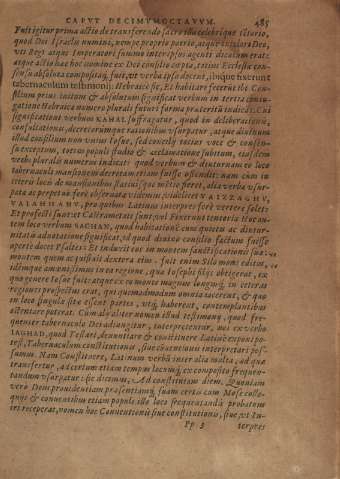 CAPVT DECIMVMOCTAVVM. 485
Fuit igitur prima actio de transferendo sacro illo celebrique
quod Dei Israelis numini, nempe proprio patrio, atque
vti Regi atque Imperatori summo interpres agenti dicatum erat:
atque actio haec hoc nomine ex Deo consilio coepta, totius Ecclesiae con-
sensu absoluta compositaque fuit, vt verba ipsa docent, ibique fixerunt
tabernaculum testimonij: Hebraice sic, Et habitare fecerunt
silium prius initum & absolutum significat verbum in tertia coniu-
gatione Hebraica numero plurali futuri forma praeteritum indicat.
significationi verbum KAHAL suffragatur, quod in deliberationi,
consultationi, decretorumque rationibus vsurpatur, atque
illud consilium non vnius Iosue, sed concilij totius voce & consensu
susceptum, totius populi studio & acclamatione subitum, eiusdem
verbi pluralis numerus indicat: quod verbum & diuturnam eo loco
tabernaculi mansionem decretam etiam fuisse ostendit: nam cum in
itineris locis de mansionibus
pata ac perpetuo fere obseruata videmus, videlicet VAIZZAGHV,
VAIAHHANV, pro quibus Latinus interpres fere vertere solet:
Et profecti sunt: vt Castrametati sunt: vel Fixerunt tentoria hic au-
tem loco verbum SACHAN, quod habitationem cum quiete ac diutur-
nitatis adnotatione significat, id quod diuino consilio factum fuisse
aperte docet Psaltes: Et induxit eos in montem sanctificationis suae:
montem quem acquisiuit dextera eius. fuit enim Silo mons editus,
idemque amoenissimus in ea regione, quae Iosephi filijs obtigerat, ex
quo genere Iosue fuit: atque ex eo monte magnus longusque in ceteras
regiones prospectus erat, qui quemadmodum omnia iacerent, & quo
in loco singula sita essent partes, vtque haberent, contemplantibus
ostentare poterat. Cum aliud alter nomen illud testimonij, quod fre-
quenter tabernaculo Dei adiungitur, interpretentur, nos ex verbo
IAGHAD, quod Testari, denuntiare & constituere Latine exponi po-
test, Tabernaculum constitutionis, siue conuentionis interpretari pos-
sumus. Nam Constituere, Latinum verbum inter alia multa, ad quae
transfertur, ad certum etiam tempus locumque ex composito frequen-
tandum vsurpatur: sic dicimus, Ad constitutam diem. Quoniam
vero Dei prouidentiam praesentiamque suam certo cum Mose collo-
quijs & conuentibus etiam populi illo loco frequentandis probatam
iri receperat, nomen hoc Conuentionis siue constitutionis, siue vt In-
Pp 3 terpres